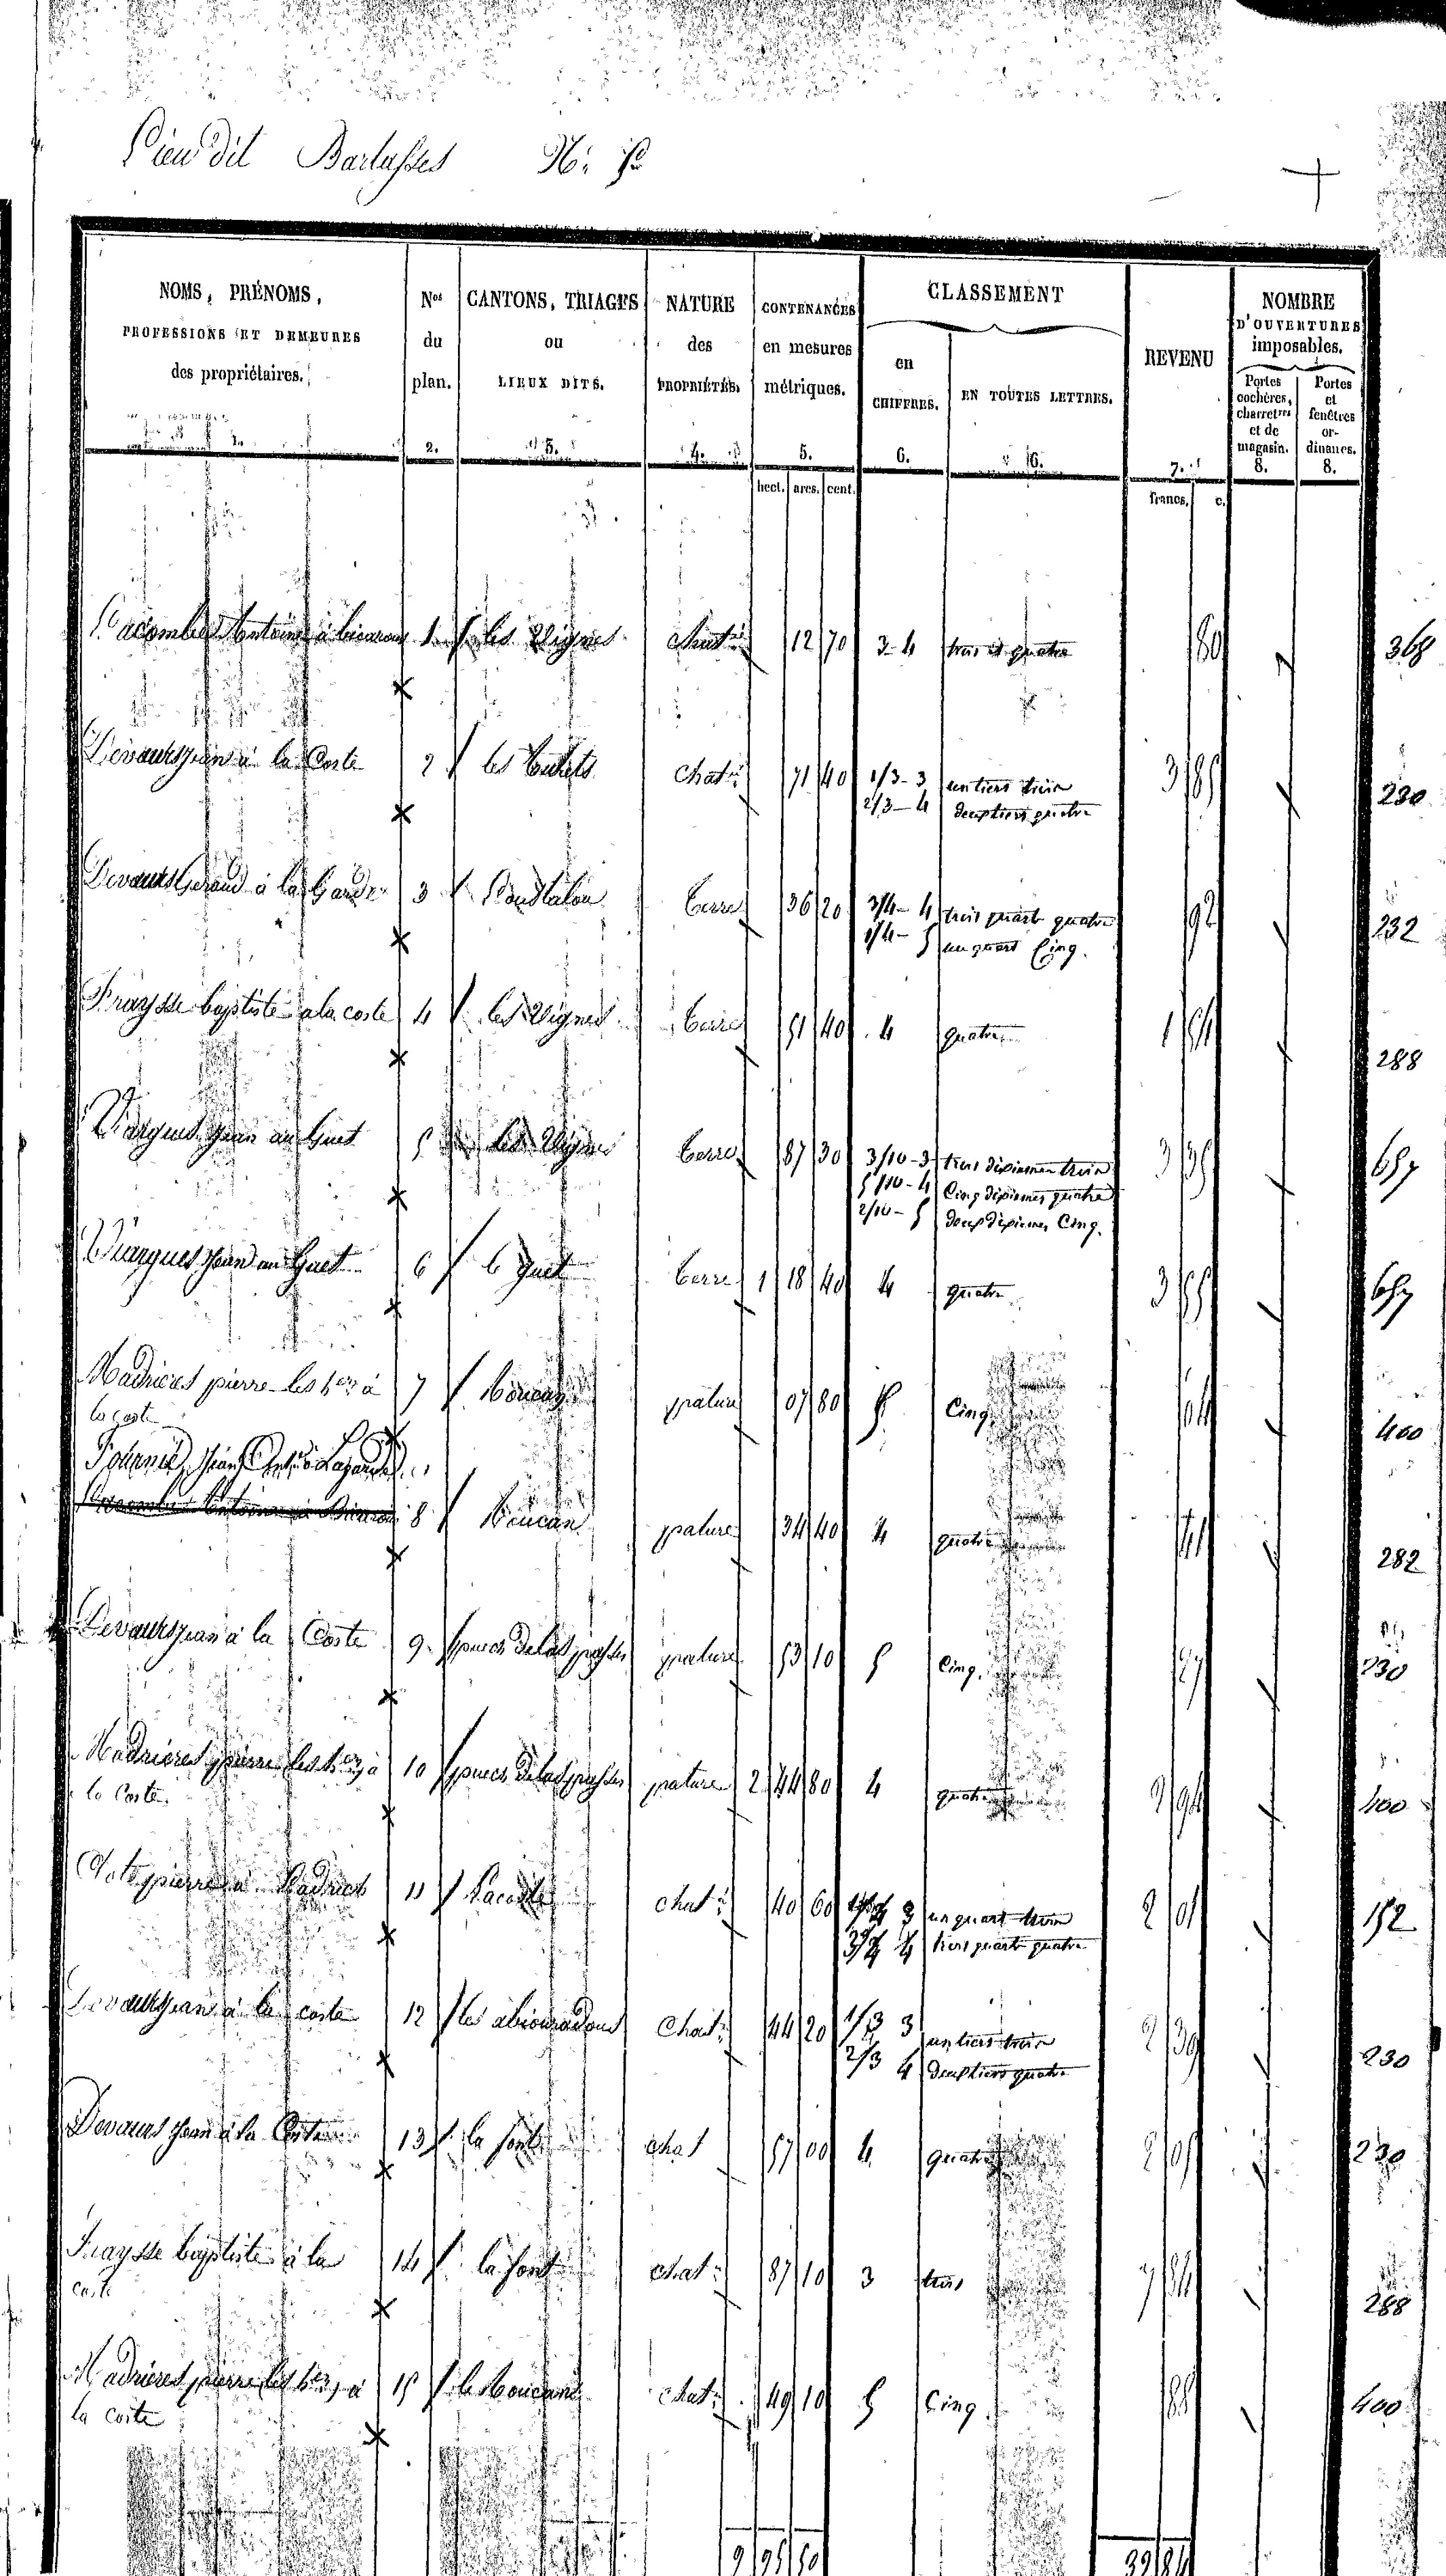 Lieu dit Barlasses
NOMS, PRÉNOMS, PROFESSIONS ET DEMEURES des propriétaires. 1.
Nos du plan. 2.
CANTONS, TRIAGES ou LIEUX DITS. 3.
NATURE des PROPRIÉTÉS. 4.
CONTENANCES en mesures métriques. 5.
hect. ares. cent.
CLASSEMENT
en CHIFFRES. 6.
EN TOUTES LETTRES. 6.
REVENU 7.
francs. c.
NOMBRE D'OUVERTURES imposables.
Portes cochères, charretres et de magasin. 8.
Portes et fenêtres ordinaires. 8.
Lacombe Antoine à 1 les Vignes chatre 12 70 3-4 trois et quatre 80 368
Devaurs Jean à la Coste 2 les chatre 71 40 1/3-3 un tiers trois 3 85 230
2/3-4 deux tiers quatre
Devaurs Geraud à la Garde 3 terre 36 20 3/4-4 trois quart quatre 92 232
1/4-5 un quart Cinq.
Fraysse baptiste a la coste 4 les Vignes terre 51 40 4 quatre 1 54 288
Viargues Jean au Guet 5 les Vignes terre 87 30 3/10-3 trois dixiemes trois 3 35 657
5/10-4 Cinq dixiemes quatre
2/10-5 deux dixiemes Cinq.
Viargues Jean au Guet 6 le Guet terre 1 18 40 4 quatre 3 55 657
Madrieres pierre les hers à 7 Boucan pature 07 80 5 Cinq 04 400
la Coste
Fournié Jean
Lacombe Antoine à 8 Boucan pature 34 40 4 quatre 41 282
Devaurs Jean à la Coste 9 puech de las pature 53 10 5 Cinq. 27 230
Madrieres pierre les hers à 10 puech de las pature 2 44 80 4 quatre 2 94 400
la Coste.
pierre à 11 Lacoste chatre 40 60 3 un quart trois 2 01 152
3/4 4 trois quart quatre
Devaurs Jean à la coste 12 les chatre 44 20 1/3 3 un tiers trois 2 39 230
2/3 4 deux tiers quatre
Devaurs Jean à la Coste 13 la font chat 57 00 4 quatre 2 05 230
Fraysse baptiste à la 14 la font chatre 87 10 3 trois 7 84 288
Coste
Madrieres pierre les hers à 15 le Boucan chatre 49 10 5 Cinq 88 400
la Coste
9 95 50 32 84